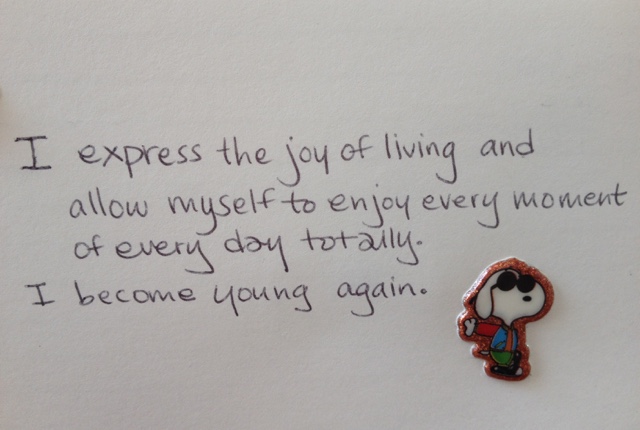 I express the joy of living and
allow myself to enjoy every moment
of every day totally.
I become young again.